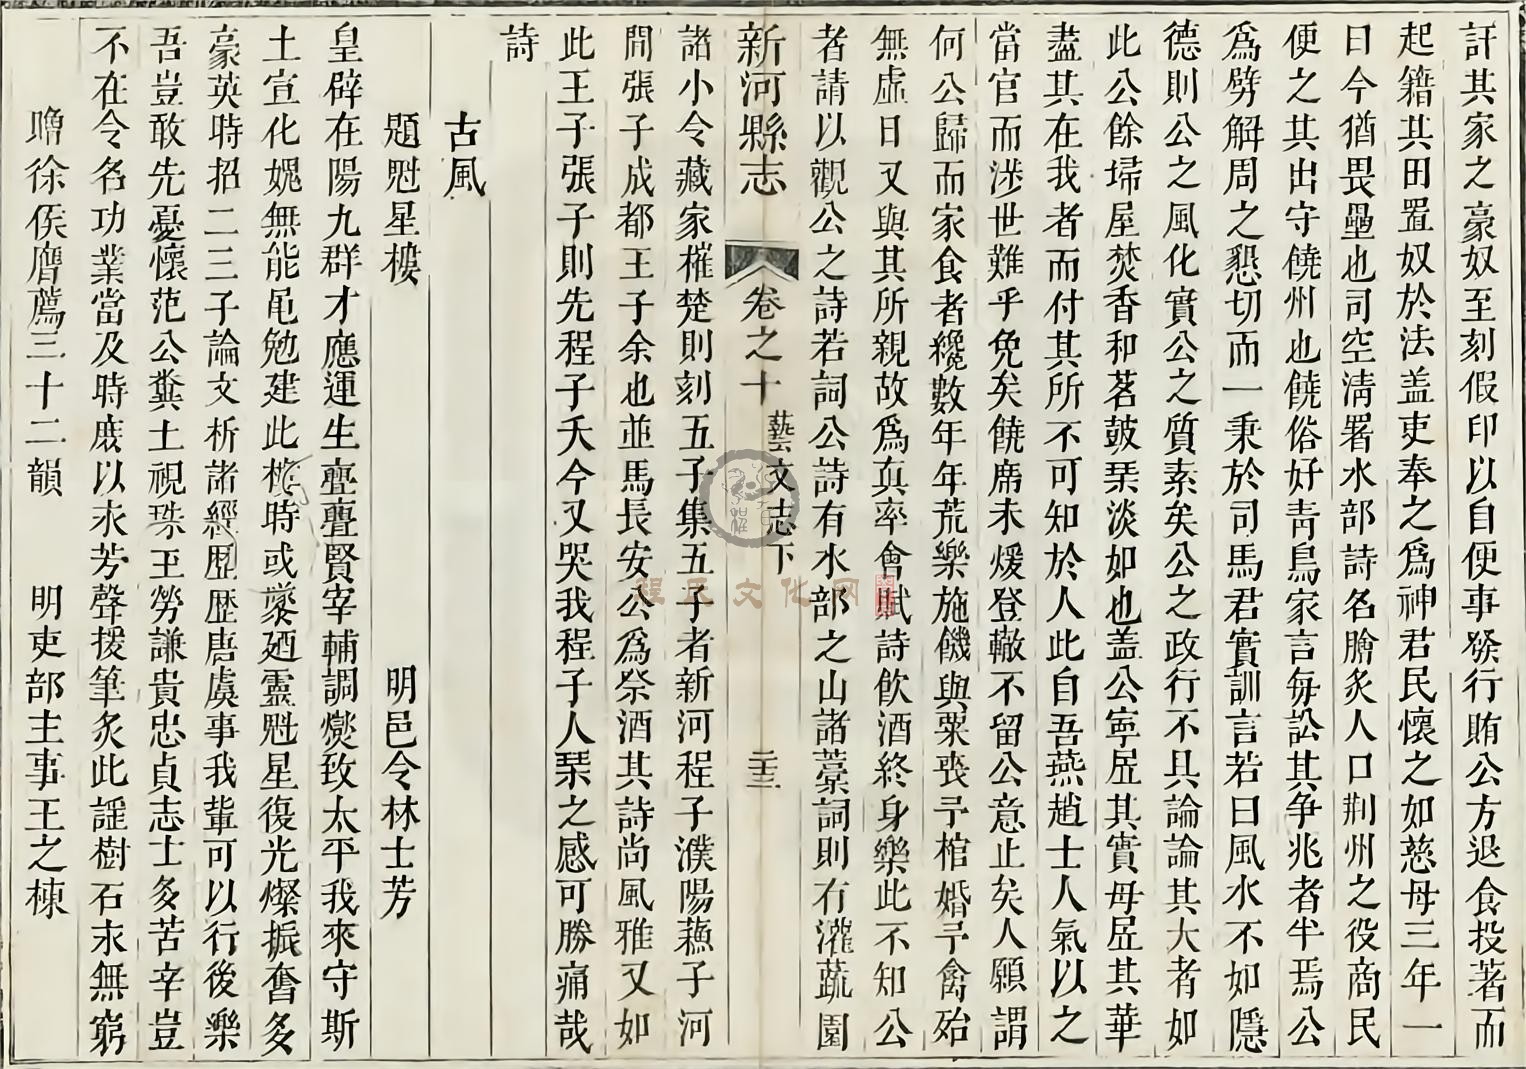 訐其家之豪奴至刻假印以自便事發行賄公方退食投著而
起籍其田置奴於法盖吏奉之爲神君民懷之如慈母三年一
日今猶畏壘也司空淸署水部詩名膾炙人口荆州之役商民
便之其出守饒州也饒俗好靑鳥家言每訟其争兆者半焉公
爲劈解周之懇切而一秉於司馬君實訓言若曰風水不如隱
德則公之風化實公之質素矣公之政行不具論論其大者如
此公餘埽屋焚香和茗鼓琹淡如也盖公寧居其實毋居其華
盡其在我者而付其所不可知於人此自吾燕趙士人氣以之
當官而涉世難乎免矣饒席未煖登轍不留公意止矣人願謂
何公歸而家食者纔數年年荒樂施饑與粟喪予棺婚予禽殆
無虛日又與其所親故爲眞率會賦詩飮酒終身樂此不知公
者請以觀公之詩若詞公詩有水部之山諸藁詞則有灌蔬園
新河縣志 卷之十 藝文志下 二十三
諸小令藏家槯楚則刻五子集五子者新河程子濮陽蘓子河
間張子成都王子余也並馬長安公爲祭酒其詩尚風雅又如
此王子張子則先程子夭今又哭我程子人琹之感可勝痛哉
詩
古風
題魁星樓 明邑令林士芳
皇辟在陽九群才應運生亹亹賢宰輔調爕致太平我來守斯
土宣化媿無能黽勉建此樓時或藜廼靈魁星復光燦振奮多
豪英時招二三子論文析諸經歷歷唐虞事我輩可以行後樂
吾豈敢先憂懷范公糞土視珠玉勞謙貴忠貞志士多苦辛豈
不在令名功業當及時庶以永芳聲援筆炙此謡樹石永無窮
贈徐侯膺薦三十二韻 明吏部主事王之棟
程氏文化网